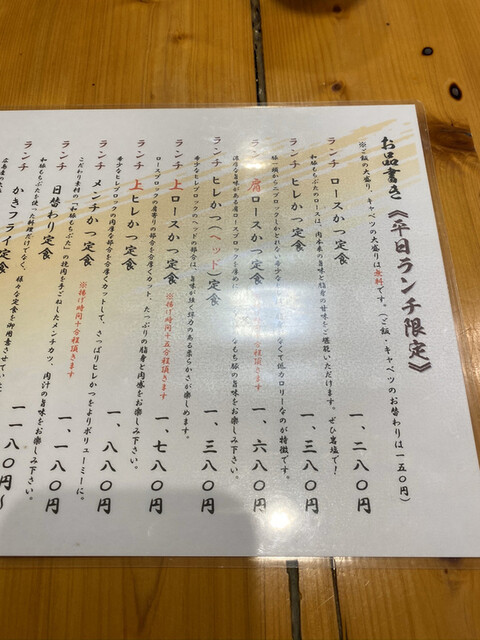 お品書き《平日ランチ限定》
※ご飯の大盛り、キャベツの大盛りは無料です。（ご飯・キャベツのお替わりは一五〇円）
ランチ ロースかつ定食 一、二八〇円
和豚もちぶたのロースは、肉本来の旨味と脂身の甘味をご堪能いただけます。ぜひ岩塩で！
ランチ ヒレかつ定食 一、三八〇円
豚一頭から二ブロックしかとれない希少な 低カロリーなのが特徴です。
ランチ 肩ロースかつ定食 一、六八〇円
濃厚な旨味がある肩ロースブロックを厚めに もち豚の旨味をお楽しみ下さい。
ランチ ヒレかつ（ヘッド）定食 一、三八〇円
希少なヒレブロックのヘッドの部分は、旨味が強く弾力のある柔らかさが楽しめます。
ランチ 上ロースかつ定食 ※揚げ時間十五分程頂きます 一、七八〇円
ロースブロックの肩寄りの部分を分厚くカット。たっぷりの脂身と肉感をお楽しみ下さい。
ランチ 上ヒレかつ定食 一、八八〇円
希少なヒレブロックの肉厚な部分を分厚くカットして、さっぱりヒレかつをよりボリューミーに。
ランチ メンチかつ定食 ※揚げ時間十分程頂きます 一、一八〇円
こだわり素材の「和豚もちぶた」の挽肉を手ごねしたメンチカツ。肉汁の旨味をお楽しみ下さい。
ランチ 日替わり定食 一、一八〇円
和豚もちぶたを使った料理だけでなく、様々な定食を御用意させていた
ランチ かきフライ定食 一一八〇円〜
広島産の大